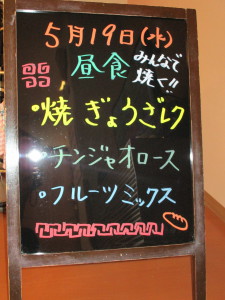 5月19日(水)
昼食 みんなで焼く!!
・焼ぎょうざレク
・チンジャオロース
・フルーツミックス